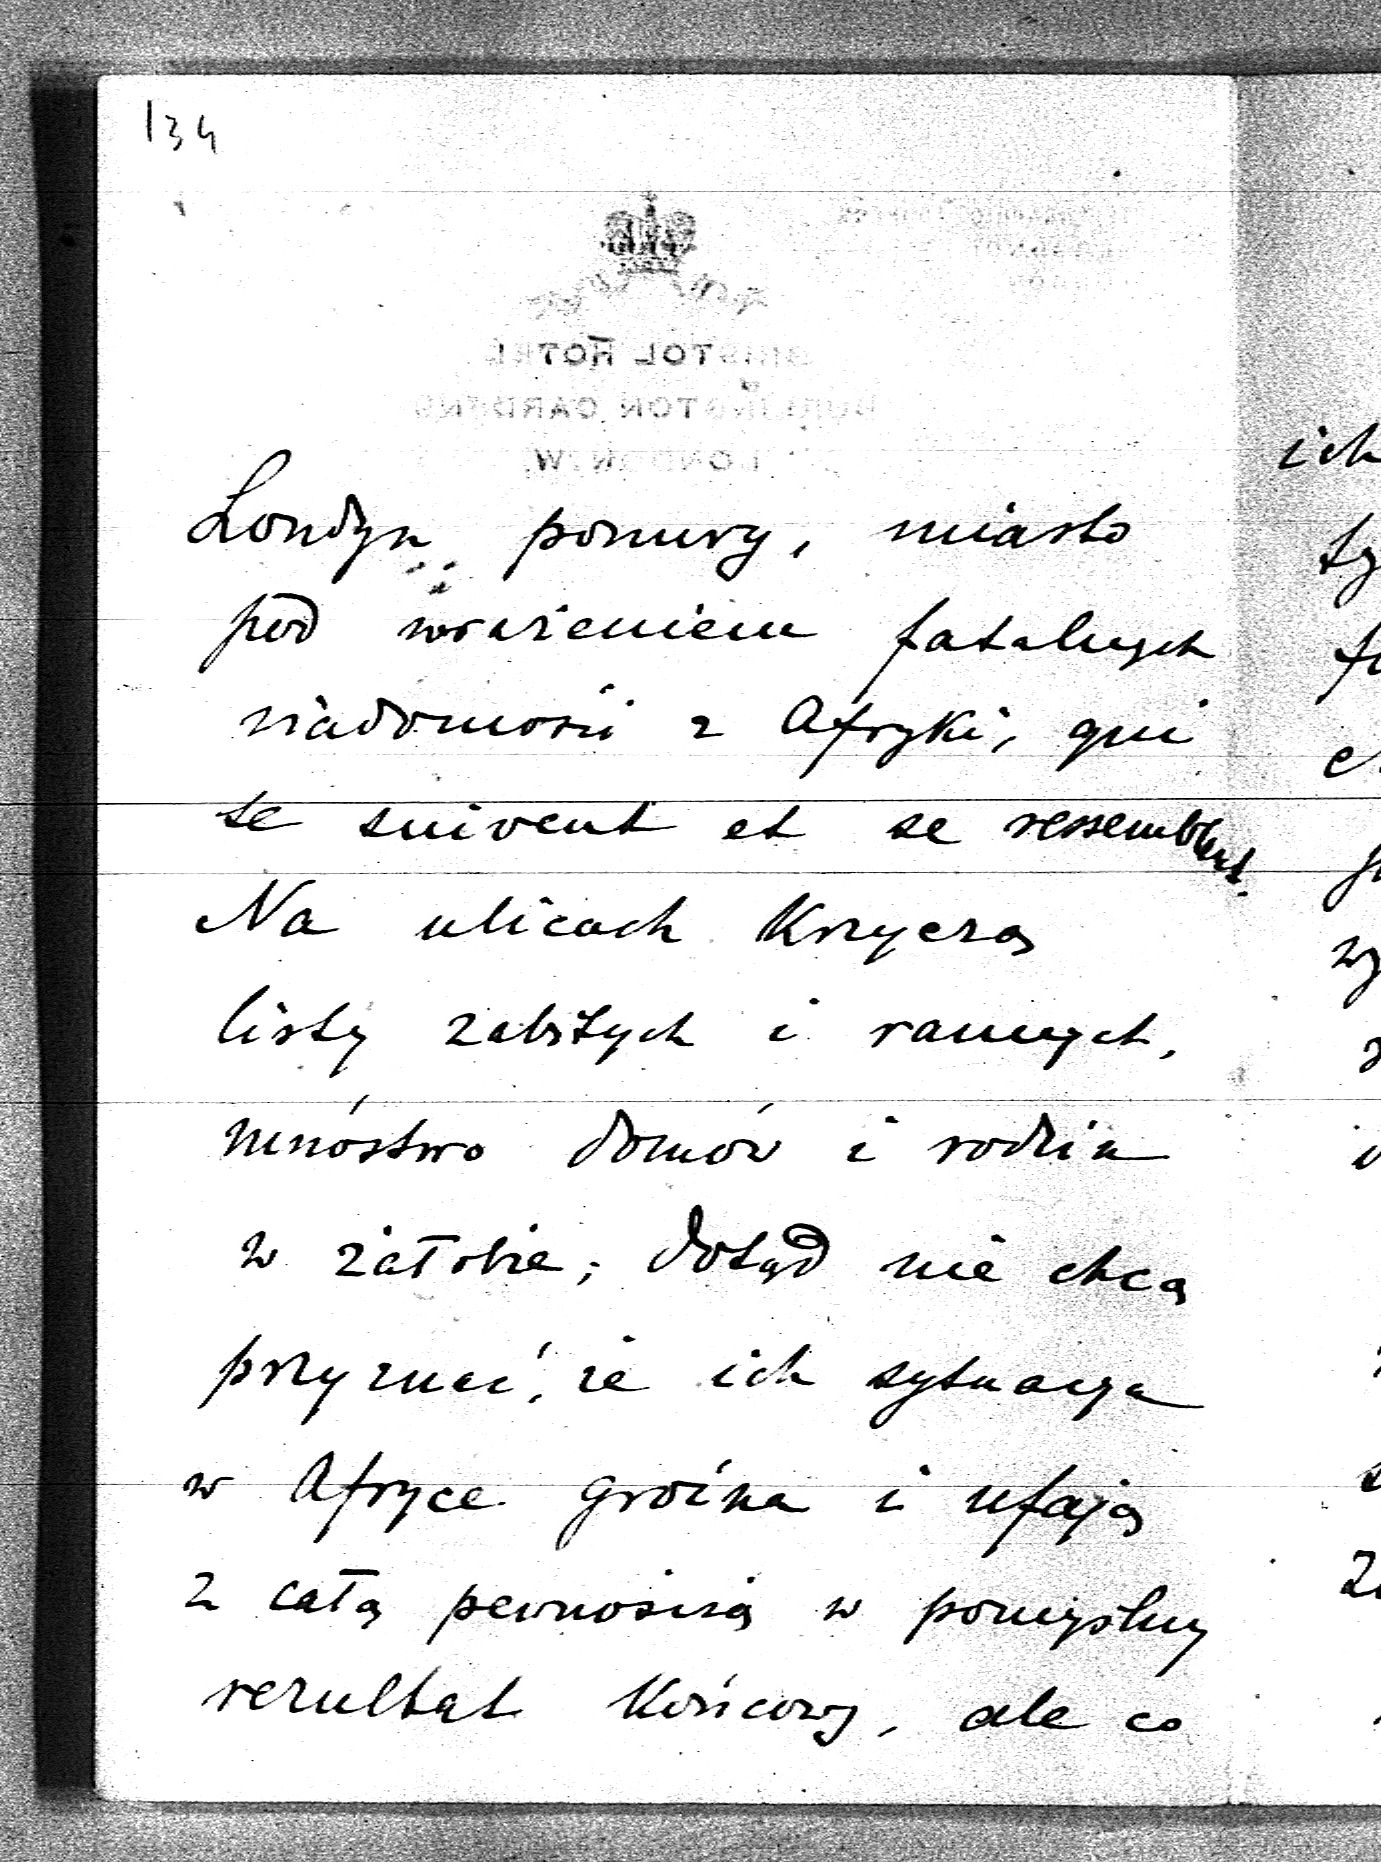 134
BRISTOL HOTEL
BURLINGTON GARDENS
LONDON.W.
Londyn ponury, miasto
pod wrażeniem fatalnych
wiadomości z Afryki, qui
se suivent et se ressemblent.
Na ulicach krzyczą
listy zabitych i rannych,
mnóstwo domów i rodzin
w żałobie; dotąd nie chcą
przyznać, że ich sytuacya
w Afryce groźna i ufają
z całą pewnością w pomyślny
rezultat końcowy, ale co
ich